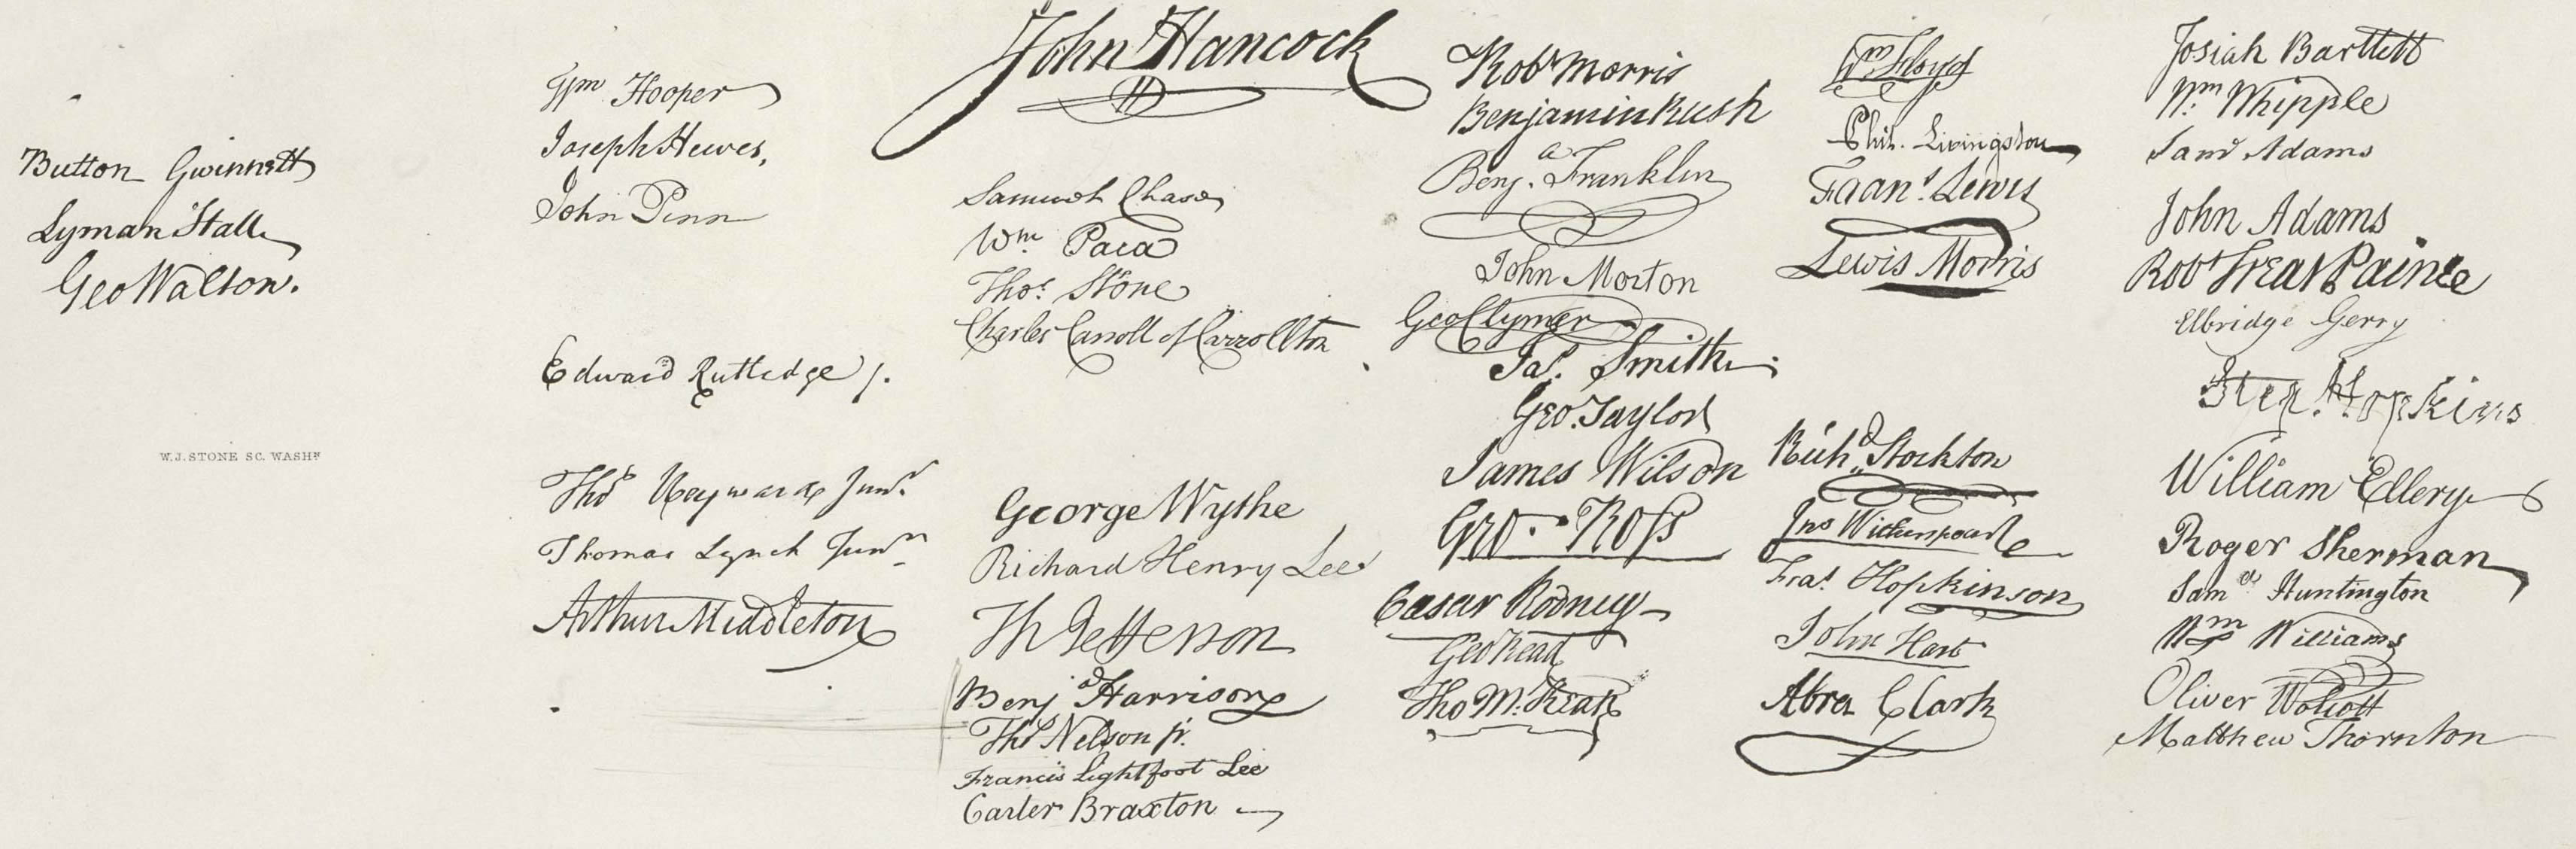 Button Gwinnett
Lyman Hall
Geo Walton.
W. J. STONE SC. WASHN
Wm Hooper
Joseph Hewes,
John Penn
Edward Rutledge /.
Thos Heyward Junr.
Thomas Lynch Junr.
Arthur Middleton
John Hancock
Samuel Chase
Wm. Paca
Thos. Stone
Charles Carroll of Carrollton
George Wythe
Richard Henry Lee
Th Jefferson
Benja Harrison
Thos Nelson jr.
Francis Lightfoot Lee
Carter Braxton
Robt Morris
Benjamin Rush
Benja. Franklin
John Morton
Geo Clymer
Jas. Smith
Geo. Taylor
James Wilson
Geo. Ross
Caesar Rodney
Geo Read
Tho M:Kean
Wm Floyd
Phil. Livingston
Frans. Lewis
Lewis Morris
Richd. Stockton
Jno Witherspoon
Fras. Hopkinson
John Hart
Abra Clark
Josiah Bartlett
Wm: Whipple
Saml Adams
John Adams
Robt Treat Paine
Elbridge Gerry
Step. Hopkins
William Ellery
Roger Sherman
Samel Huntington
Wm Williams
Oliver Wolcott
Matthew Thornton